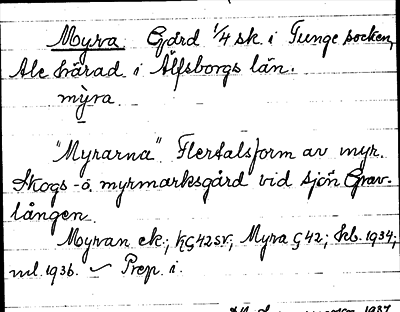 Myrva Gård 1/4 sk. i Tunge socken,
Ale härad i Älfsborgs län.
mỳra
"Myrarna". Flertalsform av myr.
Skogs- o. myrmarksgård vid sjön Grav-
lången.
Myran ek.; KG42SV; Myra G42; skb. 1934;
ml. 1936. ~ Prep. i.
1937